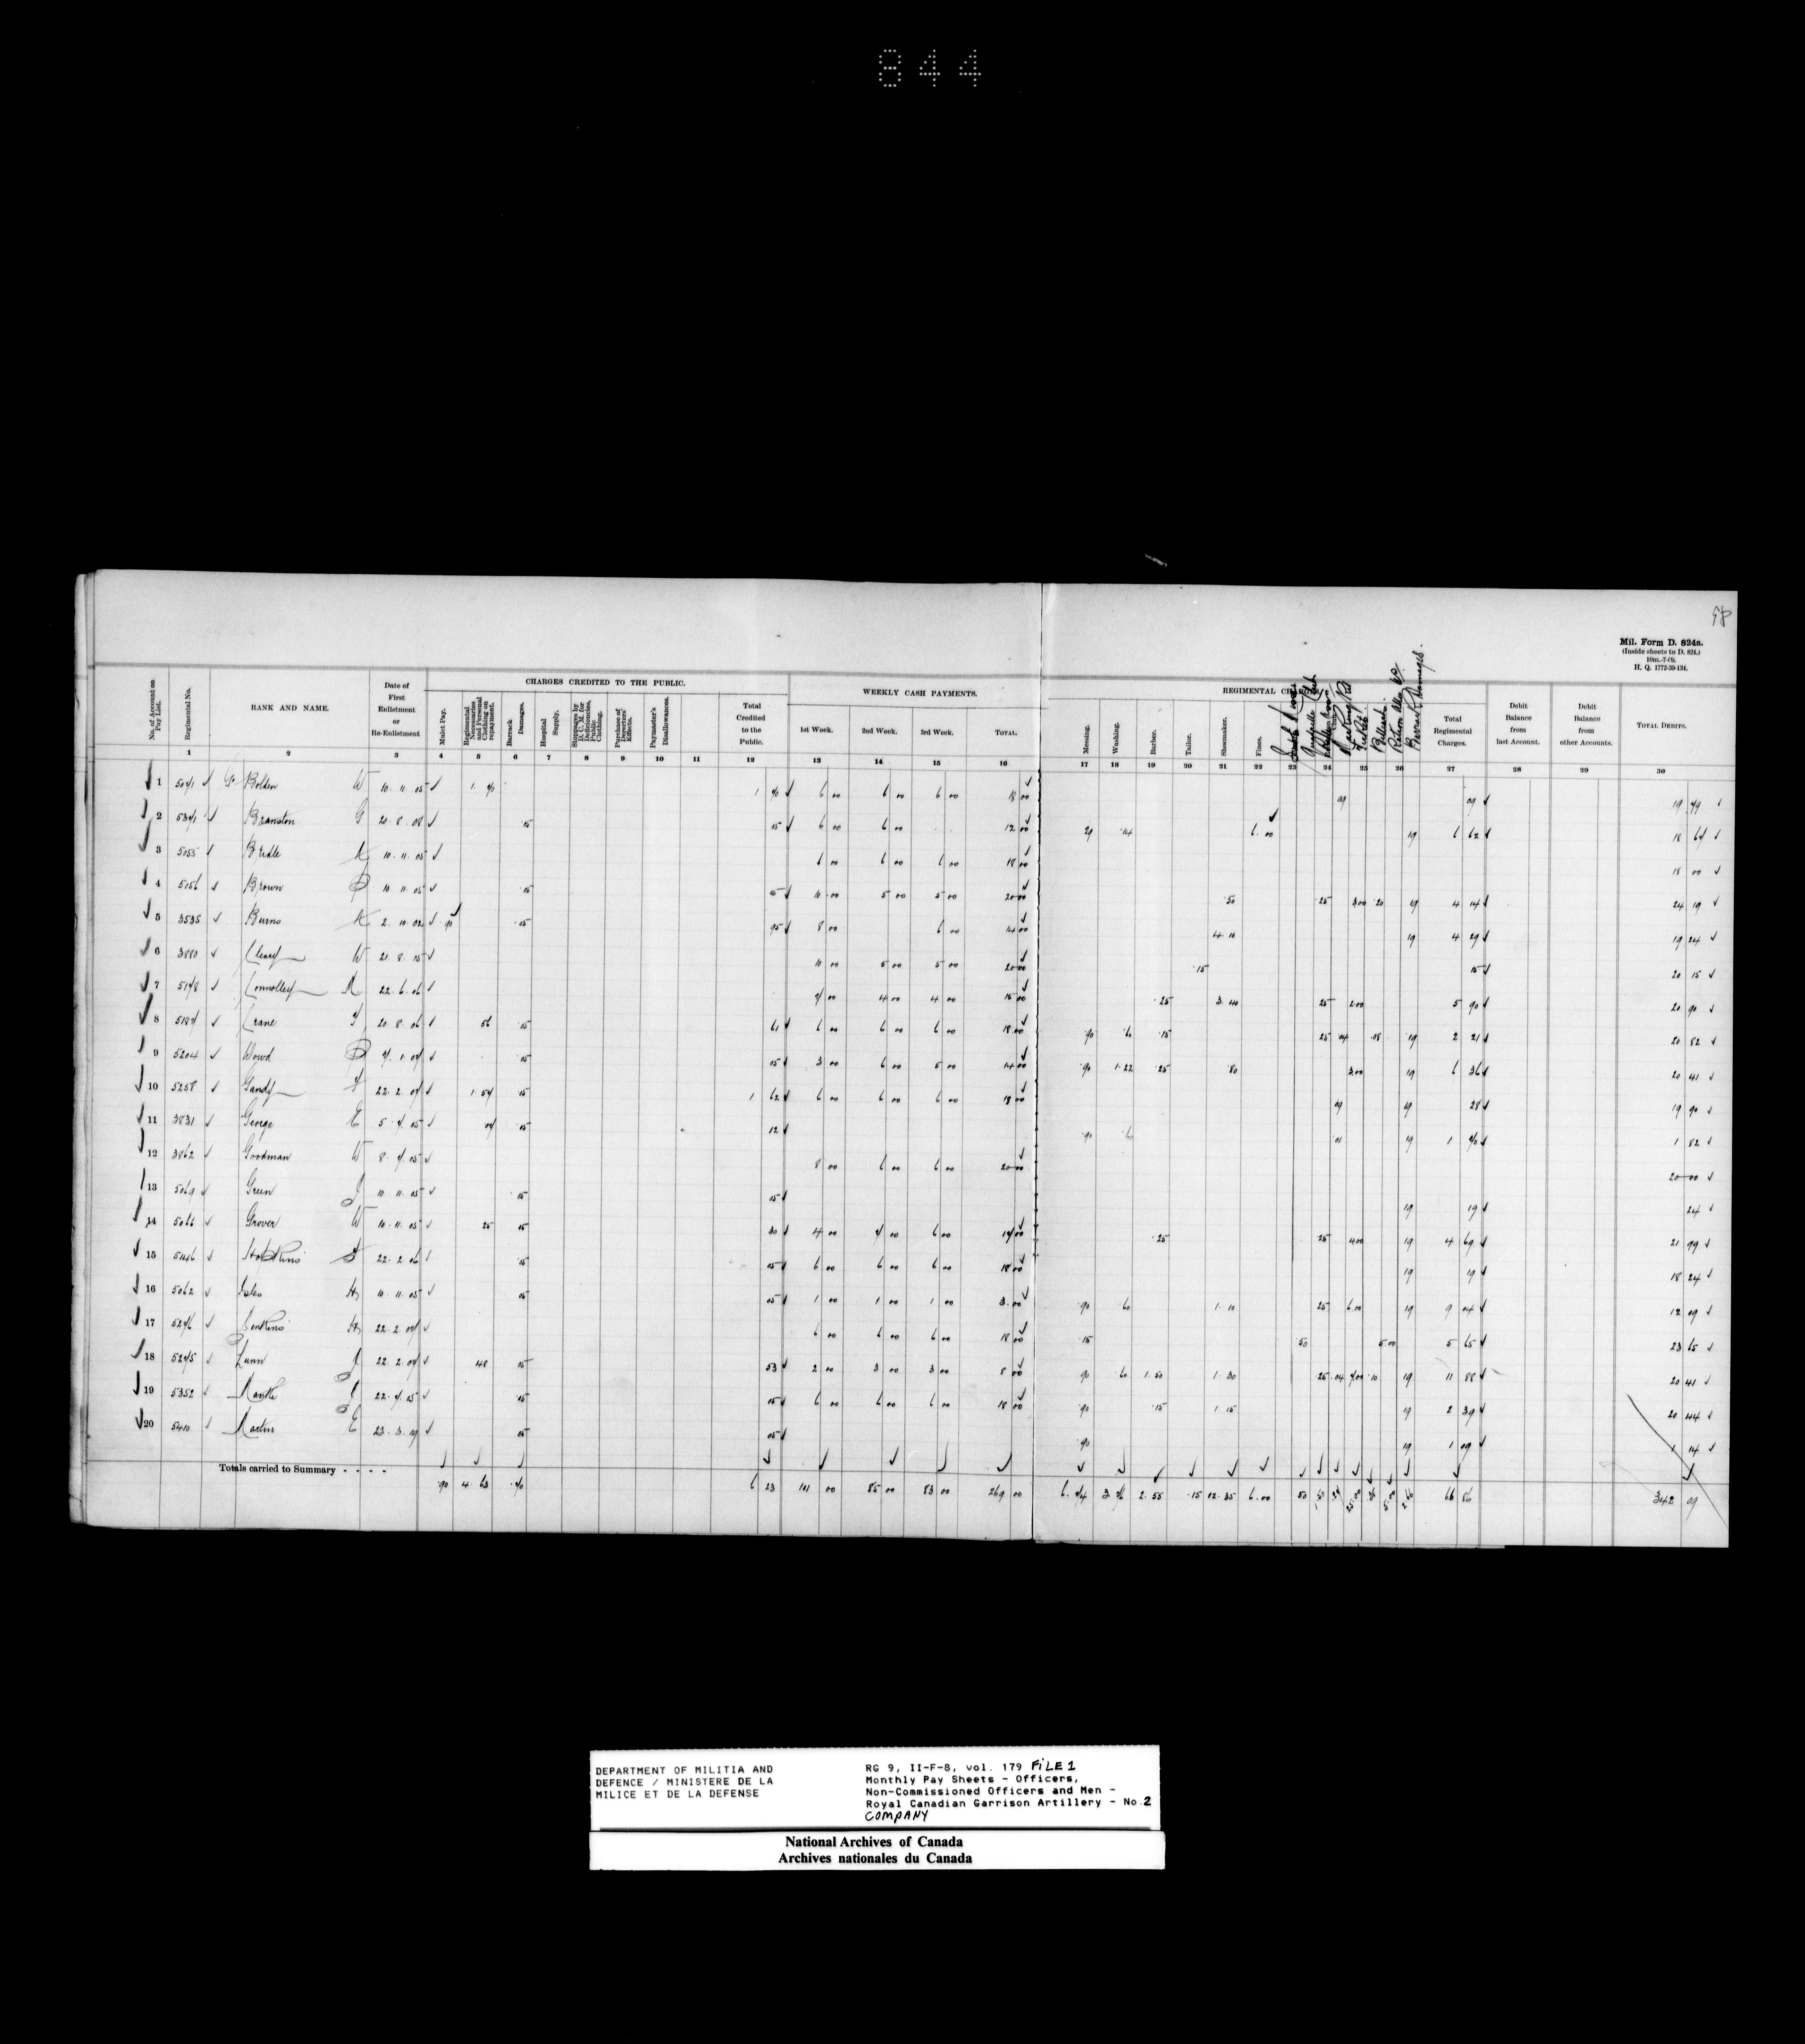 844
Mil. Form D. 824a.
(Inside sheets to D. 821.)
10m.-7-09.
H. Q. 1772-39-134.
CHARGES CREDITED TO THE PUBLIC.
WEEKLY CASH PAYMENTS.
No. of Account on Pay List.
Regimental No.
RANK AND NAME.
Date of First Enlistment or Re-Enlistment
Mulct Pay.
Regimental Necessaries and Personal Clothing on repayment.
Barrack Damages.
Hospital Supply.
Purchase of Deserters' Effects.
Paymaster's Disallowances.
Total Credited to the Public.
1st Week.
2nd Week.
3rd Week.
TOTAL.
Messing.
Washing.
Barber.
Tailor.
Shoemaker.
Fines.
Barrack Damages.
Total Regimental Charges.
Debit Balance from last Account.
Debit Balance from other Accounts.
TOTAL DEBITS.
1 2 3 4 5 6 7 8 9 10 11 12 13 14 15 16 17 18 19 20 21 22 23 24 25 26 27 28 29 30
1 5071 Gr Bolden W 10. 11. 05 1. 70 1 70 6 00 6 00 6 00 18 00 09 09 19 79
2 5371 Branston G 20. 8. 08 .05 05 6 00 6 00 12 00 29 .14 6. 00 19 6 62 18 67
3 5055 Bridle K 10. 11. 05 6 00 6 00 6 00 18 00 18 00
4 5056 Brown P 10 11 05 .05 05 10 00 5 00 5 00 20 00 .50 .25 3.00 .20 19 4 14 24 19
5 3535 Burns K 2. 10. 02 .90 .05 95 8 00 6 00 14 00 4 10 19 4 29 19 24
6 3880 Cleary W 21. 8. 05 10 00 5 00 5 00 20 00 .15 15 20 15
7 5178 Connolley M 22. 6. 06 7 00 4 00 4 00 15 00 .25 3. 40 25 2.00 5 90 20 90
8 5187 Crane F 20. 8. 06 56 .05 61 6 00 6 00 6 00 18.00 .90 .60 .15 25 .04 .08 19 2 21 20 82
9 5204 Dowd P 7. 1. 07 .05 05 3 00 6 00 5 00 14 00 .90 1.22 .25 .80 3.00 19 6 36 20 41
10 5258 Gandy F 22. 2. 07 1. 57 05 1 62 6 00 6 00 6 00 18 00 09 19 28 19 90
11 3831 George E 5. 7. 05 07 .05 12 .90 .60 .01 19 1 70 1 82
12 3862 Goodman W 8. 7. 05 8 00 6 00 6 00 20 00 20 00
13 5069 Green J 10 11. 05 .05 05 19 19 24
14 5066 Grover W 10. 11. 05 25 05 30 4 00 7 00 6 00 17 00 .25 .25 4.00 19 4 69 21 99
15 5146 Hopkins F 22. 2. 06 .05 05 6 00 6 00 6 00 18 00 19 19 18 24
16 5062 Isles H 10. 11. 05 05 05 1 00 1 00 1 00 3.00 .90 60 1. 10 25 6.00 19 9 04 12 09
17 5276 Jenkins H 22. 2. 07 6 00 6 00 6 00 18 00 .15 50 5 00 5 65 23 65
18 5275 Lunn J 22. 2. 07 48 05 53 2 00 3 00 3 00 8 00 90 60 1. 50 1. 30 .25 .04 7.00 .10 19 11 88 20 41
19 5352 Mantle J 22. 7. 05 .05 05 6 00 6 00 6 00 18 00 .90 .15 1 15 19 2 39 20 44
20 5410 Martin E 23. 3. 09 05 05 .90 19 1 09 1 14
Totals carried to Summary - - - - .90 4. 63 .70 6 23 101 00 85 00 83 00 269 00 6. 74 3. 76 2. 55 .15 12. 35 6. 00 50 66 86 342 09
DEPARTMENT OF MILITIA AND
DEFENCE / MINISTERE DE LA
MILICE ET DE LA DEFENSE
RG 9, II-F-8, vol. 179 FILE 1
Monthly Pay Sheets - Officers,
Non-Commissioned Officers and Men -
Royal Canadian Garrison Artillery - No.2
COMPANY
National Archives of Canada
Archives nationales du Canada